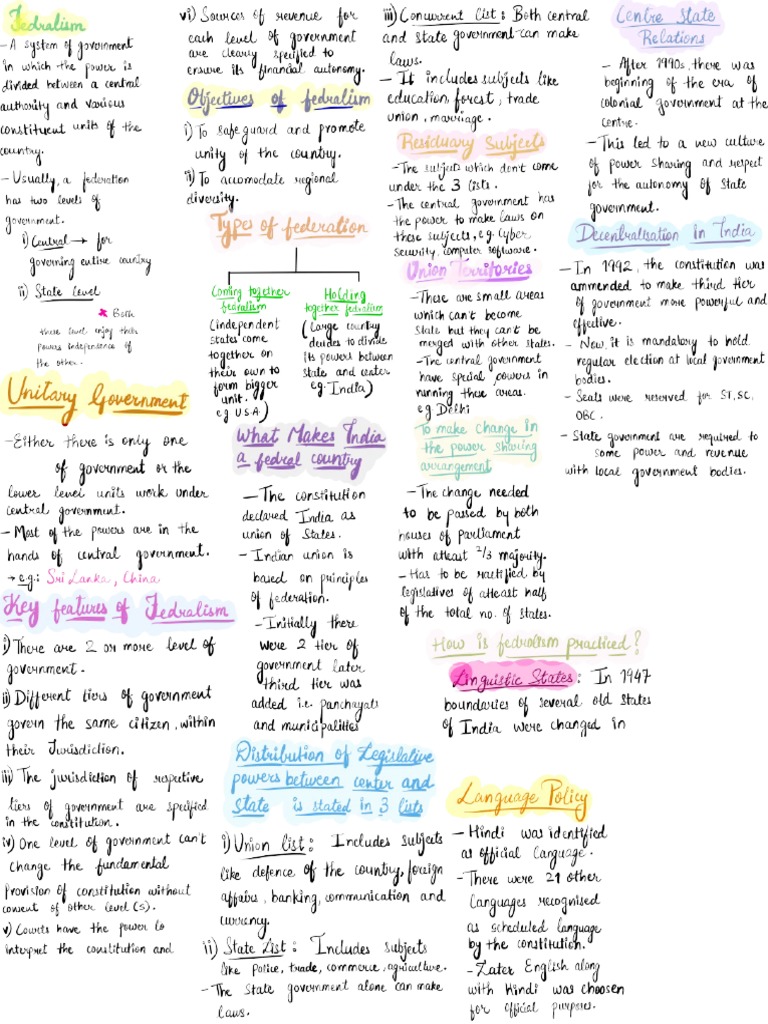 Fedralism
- A system of government
in which the power is
divided between a central
authority and various
constituent units of the
country.
- Usually, a federation
has two levels of
government.
i) Central → for
governing entire country
ii) State level
* Both
these level enjoy their
powers independence of
the other.
Unitary Government
- Either there is only one
of government or the
lower level units work under
central government.
- Most of the powers are in the
hands of central government.
→ e.g.: Sri Lanka, China
Key features of Fedralism
i) There are 2 or more level of
government.
ii) Different tiers of government
govern the same citizen, within
their Jurisdiction.
iii) The jurisdiction of respective
tiers of government are specified
in the constitution.
iv) One level of government can't
change the fundamental
provision of constitution without
consent of other level(s).
v) Courts have the power to
interpret the constitution and
vi) Sources of revenue for
each level of government
are clearly specified to
ensure its financial autonomy.
Objectives of fedralism
i) To safe guard and promote
unity of the country.
ii) To accomodate regional
diversity.
Types of federation
Coming together
fedralism
(independent
states come
together on
their own to
form bigger
unit.
eg U.S.A)
Holding
together fedralism
(Large country
decides to divide
its powers between
state and
eg: India)
What Makes India
a fedral country
- The constitution
declared India as
union of States.
- Indian union is
based on principles
of federation.
- Initially there
were 2 tier of
government later
third tier was
added i.e. panchayats
and municipalities
Distribution of Legislative
powers between center and
State is stated in 3 lists
i) Union list: Includes subjects
like defence of the country, foreign
affairs, banking, communication and
currency.
ii) State List: Includes subjects
like Police, trade, commerce, agriculture.
- The State government alone can make
laws.
iii) Concurrent List: Both central
and state government can make
laws.
- It includes subjects like
education, forest, trade
union, marriage.
Residuary Subjects
- The subjects which don't come
under the 3 lists.
- The central government has
the power to make laws on
these subjects, e.g. Cyber
Security, computer software.
Union Territories
- These are small areas
which can't become
State but they can't be
merged with other states.
- The central government
have special powers in
running these areas.
eg Delhi
To make change in
the power sharing
arrangement
- The change needed
to be passed by both
houses of Parliament
with atleast 2/3 majority.
- Has to be by
legislatives of atleast half
of the total no. of states.
How is fedralism practiced?
Linguistic States: In 1947
boundaries of several old States
of India were changed in
Language Policy
- Hindi was identified
as official Language.
- There were 21 other
Languages recognised
as scheduled language
by the constitution.
- Later English along
with Hindi was choosen
for official purposes.
Centre State
Relations
- After 1990s, there was
beginning of the era of
colonial government at the
centre.
- This led to a new culture
of power sharing and respect
for the autonomy of State
government.
Decentralisation in India
- In 1992, the constitution was
ammended to make third tier
of government more powerful and
effective.
- Now, it is mandatory to hold
regular election at local government
bodies.
- Seats were reserved for ST, SC,
OBC.
- State government are required to
some power and revenue
with local government bodies.